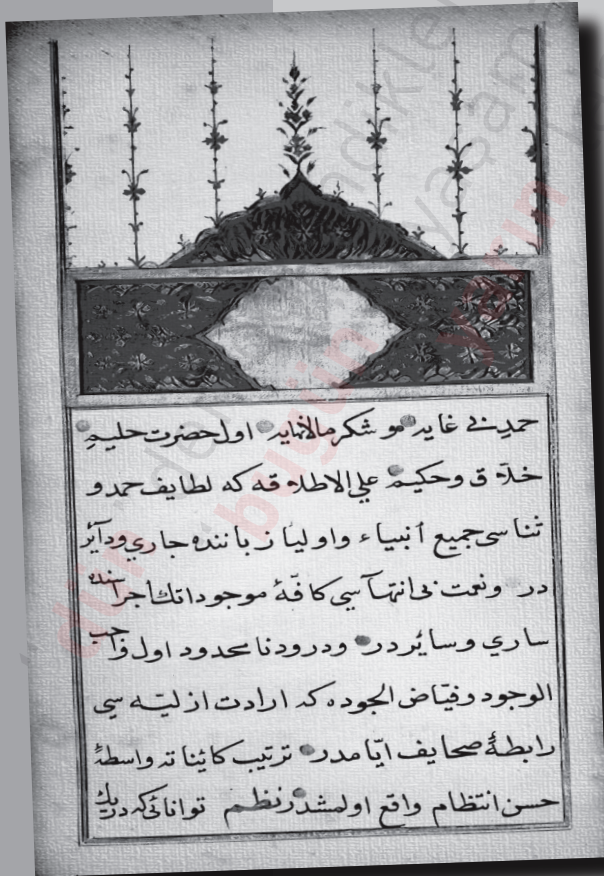 حمدِ بى غايه و شكر مالانهايه اول حضرت حليم
خلاّق وحكيم على الاطلاقه كه لطايف حمد و
ثناسى جميع انبياء و اوليا زباننده جارى ودآئر
در ونعت بى انتهآسى كافّهٔ موجوداتك اجراسنده
سارى وسائر در ودرود نا محدود اول واجب
الوجود وفيّاض الجوده كه ارادت ازليّه سى
رابطهٔ صحايف ايّامدر ترتيب كائناته واسطهٔ
حسن انتظام واقع اولمشدر نظم توانائى كه در يك
dün
bugün
yarın